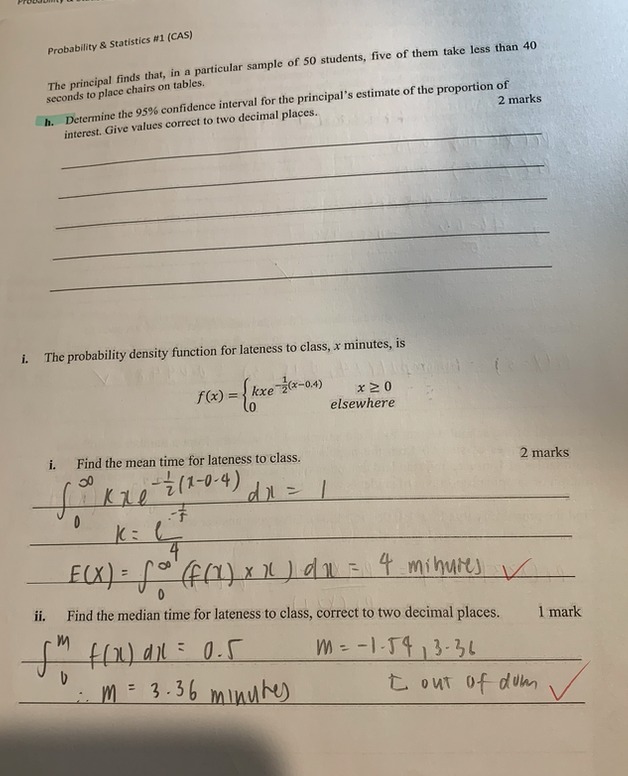 Probability & Statistics #1 (CAS)
The principal finds that, in a particular sample of 50 students, five of them take less than 40
seconds to place chairs on tables.
h. Determine the 95% confidence interval for the principal's estimate of the proportion of
interest. Give values correct to two decimal places.
2 marks
i. The probability density function for lateness to class, x minutes, is
f(x) = { kxe^{-1/2(x-0.4)} x ≥ 0
0 elsewhere
i. Find the mean time for lateness to class.
2 marks
∫_0^∞ kxe^{-1/2(x-0.4)} dx = 1
k = e^{-1/5}/4
E(X) = ∫_0^∞ (f(x) × x) dx = 4 minutes ✓
ii. Find the median time for lateness to class, correct to two decimal places.
1 mark
∫_0^m f(x) dx = 0.5 m = -1.54, 3.36
∴ m = 3.36 minutes out of dom ✓